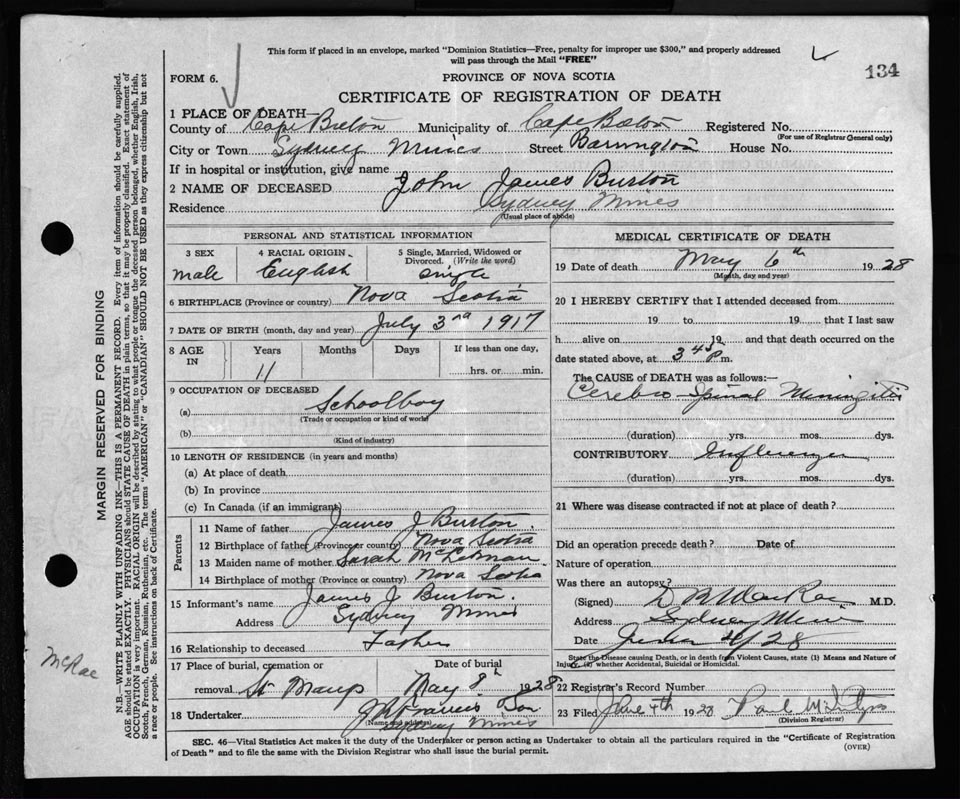 This form if placed in an envelope, marked "Dominion Statistics—Free, penalty for improper use $300," and properly addressed
will pass through the Mail "FREE"
134
FORM 6.
PROVINCE OF NOVA SCOTIA
CERTIFICATE OF REGISTRATION OF DEATH
1 PLACE OF DEATH
County of Cape Breton Municipality of Cape Breton Registered No.
(For use of Registrar General only)
City or Town Sydney Mines Street Barrington House No.
If in hospital or institution, give name
2 NAME OF DECEASED John James Burton
Residence Sydney Mines
(Usual place of abode)
PERSONAL AND STATISTICAL INFORMATION
3 SEX 4 RACIAL ORIGIN 5 Single, Married, Widowed or
Divorced. (Write the word)
male English single
6 BIRTHPLACE (Province or country) Nova Scotia
7 DATE OF BIRTH (month, day and year) July 3rd 1917
8 AGE IN Years Months Days If less than one day,
11 hrs. or min.
9 OCCUPATION OF DECEASED
(a) Schoolboy
(Trade or occupation or kind of work)
(b)
(Kind of industry)
10 LENGTH OF RESIDENCE (in years and months)
(a) At place of death
(b) In province
(c) In Canada (if an immigrant)
Parents
11 Name of father James J Burton.
12 Birthplace of father (Province or country) Nova Scotia
13 Maiden name of mother Sarah
14 Birthplace of mother (Province or country) Nova Scotia
15 Informant's name James J Burton.
Address Sydney Mines
16 Relationship to deceased Father
17 Place of burial, cremation or Date of burial
removal May 8th 1928
18 Undertaker Francis
(Name and address)
Sydney Mines
MEDICAL CERTIFICATE OF DEATH
19 Date of death May 6th 1928
(Month, day and year)
20 I HEREBY CERTIFY that I attended deceased from
19 to 19 that I last saw
h alive on 19 and that death occurred on the
date stated above, at 3 45 P m.
The CAUSE OF DEATH was as follows:—
Cerebro Spinal Miningitis
(duration) yrs. mos. dys.
CONTRIBUTORY Influenza
(duration) yrs. mos. dys.
21 Where was disease contracted if not at place of death?
Did an operation precede death? Date of
Nature of operation
Was there an autopsy?
(Signed) D MacRae M.D.
Address Sydney Mines
Date 4/28
State the Disease causing Death, or in death from Violent Causes, state (1) Means and Nature of
Injury, (2) whether Accidental, Suicidal or Homicidal.
22 Registrar's Record Number
23 Filed June 4th 1928
(Division Registrar)
SEC. 46—Vital Statistics Act makes it the duty of the Undertaker or person acting as Undertaker to obtain all the particulars required in the "Certificate of Registration
of Death" and to file the same with the Division Registrar who shall issue the burial permit.
(OVER)
MARGIN RESERVED FOR BINDING
N.B.—WRITE PLAINLY WITH UNFADING INK—THIS IS A PERMANENT RECORD. Every item of information should be carefully supplied.
AGE should be stated EXACTLY. PHYSICIANS should STATE CAUSE OF DEATH in plain terms, so that it may be properly classified. Exact statement of
OCCUPATION is very important. RACIAL ORIGIN will be described by stating to what people or tongue the deceased person belonged, whether English, Irish,
Scotch, French, German, Russian, Ruthenian, etc. The terms "AMERICAN" or "CANADIAN" SHOULD NOT BE USED as they express citizenship but not
a race or people. See instructions on back of Certificate.
McRae